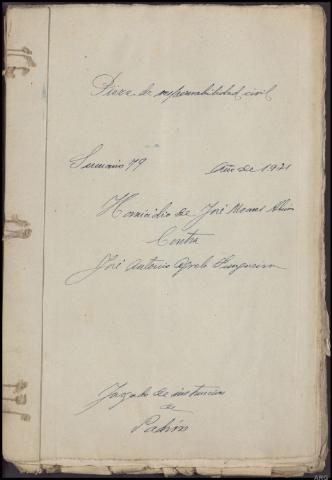 Pieza de responsabilidad civil
Sumario 79 Año de 1921
Homicidio de José Manuel
Contra
José Antonio Agrelo
Juzgado de instrucción
de
Padrón
ARG